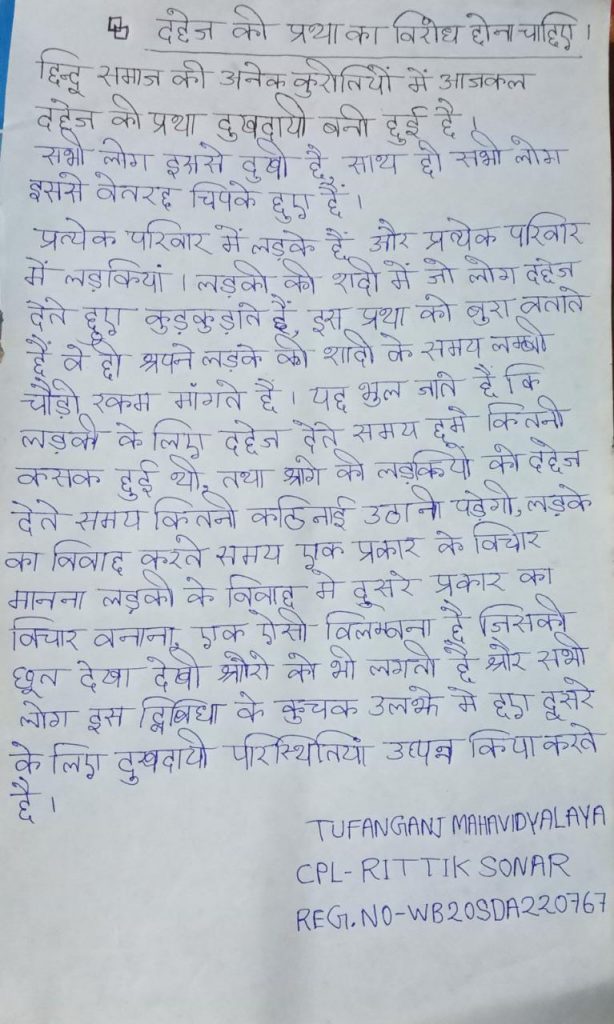 दहेज की प्रथा का विरोध होना चाहिए।
हिन्दू समाज की अनेक कुरीतियों में आजकल
दहेज की प्रथा दुखदायी बनी हुई है।
सभी लोग इससे दुखी है, साथ ही सभी लोग
इससे वेतरह चिपके हुए हैं।
प्रत्येक परिवार में लड़के हैं और प्रत्येक परिवार
में लड़कियां। लड़की की शादी में जो लोग दहेज
देते हुए कुड़कुड़ाते हैं, इस प्रथा को बुरा बताते
हैं वे ही अपने लड़के की शादी के समय लम्बी
चौड़ी रकम मांगते है। यह भुल जाते है कि
लड़की के लिए दहेज देते समय हमे कितनी
कसक हुई थी, तथा आगे की लड़कियों को दहेज
देते समय कितनी कठिनाई उठानी पड़ेगी, लड़के
का विवाह करते समय एक प्रकार के विचार
मानना लड़की के विवाह मे दुसरे प्रकार का
विचार वनाना, एक ऐसी विलम्बना है जिसकी
छूत देखा देखी औरो को भी लगती है और सभी
लोग इस द्विबिधा के कुचक उलझे मे हुए दूसरे
के लिए दुखदायी परिस्थितियां उत्पन्न किया करते
है।
TUFANGANJ MAHAVIDYALAYA
CPL- RITTIK SONAR
REG.NO-WB20SDA220767